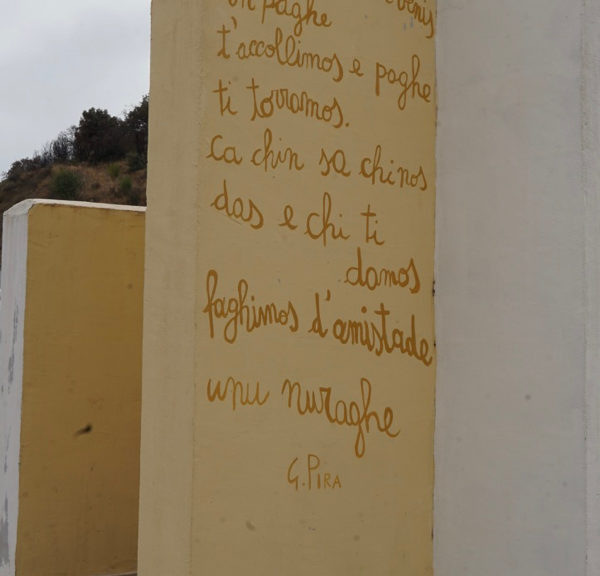 in paghe venis
t'accollimos e paghe
ti torramos.
ca chin sa chi nos
das e chi ti
damos
faghimos d'amistade
unu nuraghe
G. PIRA